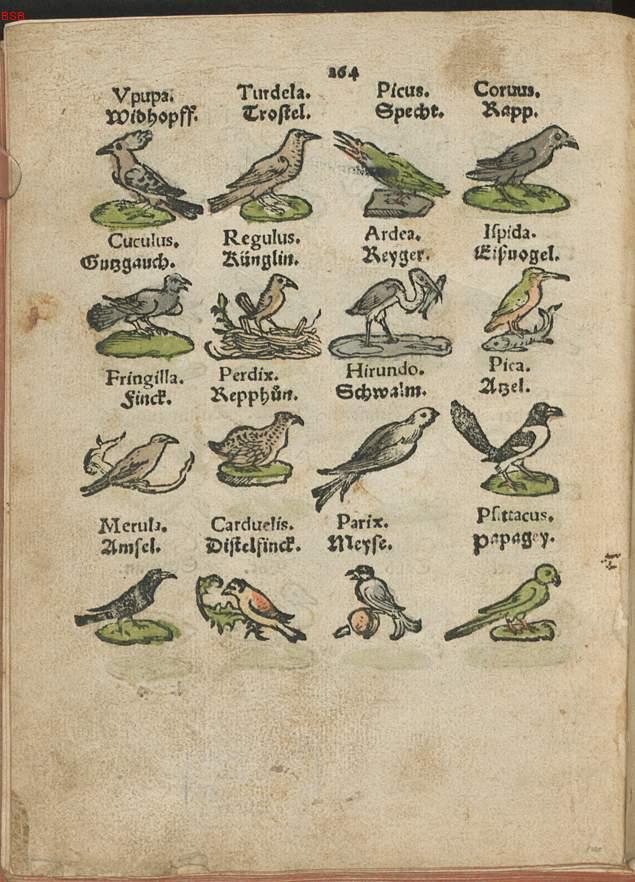 BSB
264
Vpupa. Turdela. Picus. Coruus.
Widhopff. Trostel. Specht. Rapp.
Cuculus. Regulus. Ardea. Ispida.
Gutzgauch. Künglin. Reyger. Eißuogel.
Fringilla. Perdix. Hirundo. Pica.
Finck. Repphůn. Schwalm. Atzel.
Merula. Carduelis. Parix. Psittacus.
Amsel. Distelfinck. Meyse. Papagey.